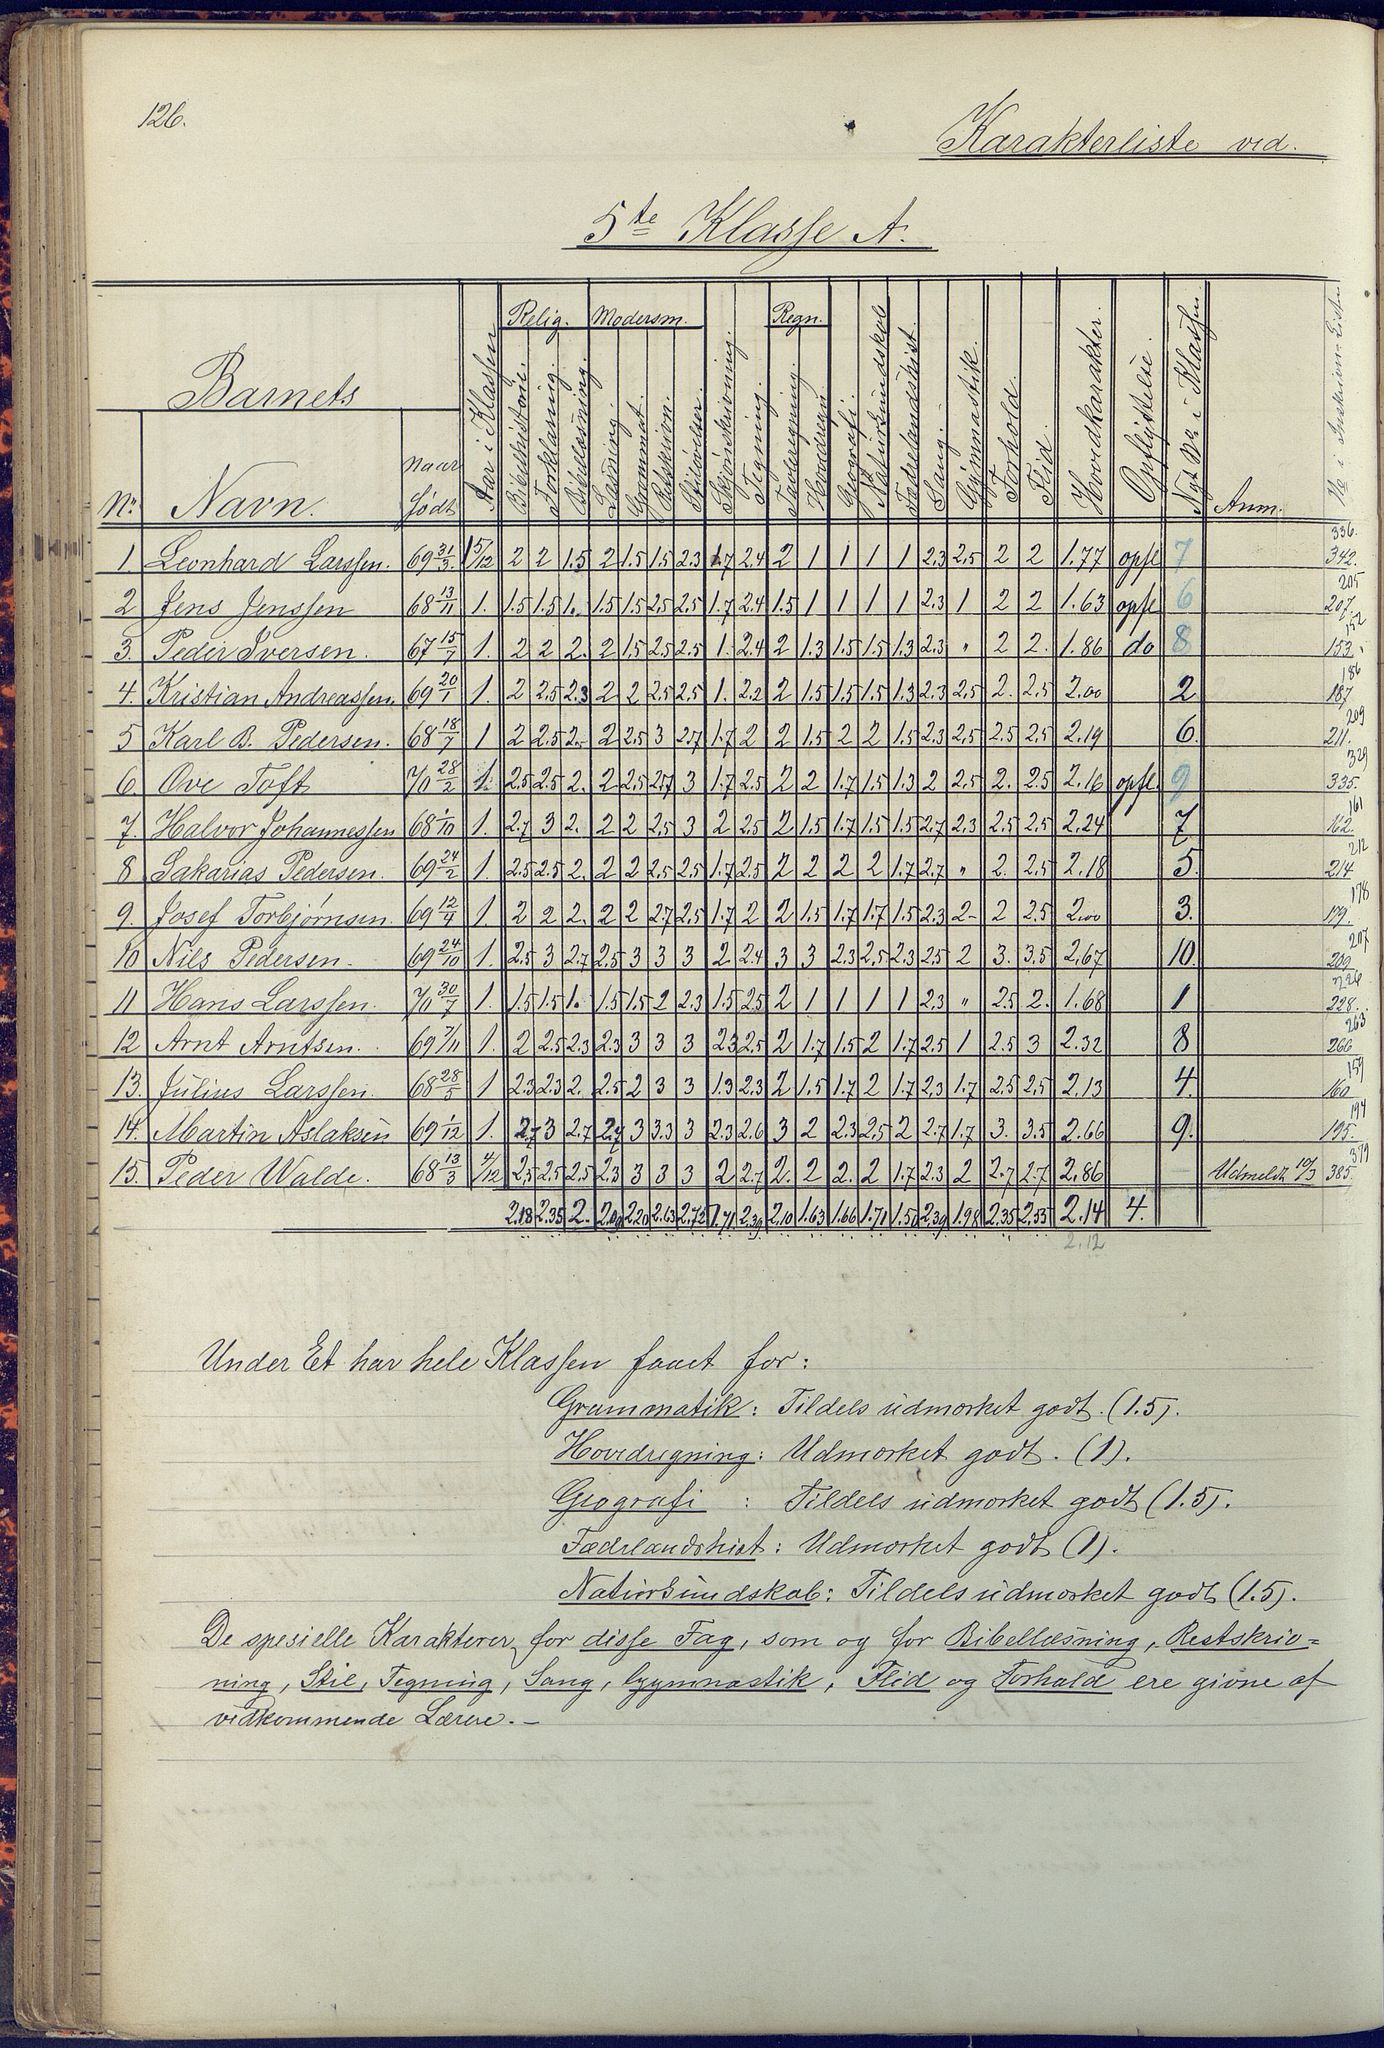 126.
Karakterliste ved.
5te Klasse A.
Barnets
Nr. Navn. Naar født Aar i Klassen Relig. Bibelhistorie. Forklaring. Bibellæsning. Modersm. Læsning. Grammat. Retskrivn. Stiløvelser. Skjønskrivning. Tegning. Regn. Tavleregning. Hovedregn. Geografi. Naturkundskab Fædrelandshist. Sang. Gymnastik. Forhold. Flid. Hovedkarakter. Opflyttelse. Nyt Nr. i Klassen. Anm.
1. Leonhard Larssen. 69 31/3. 1 5/12 2 2 1.5 2 1.5 1.5 2.3 1.7 2.4 2 1 1 1 1 2.3 2.5 2 2 1.77 opfl 7 336. 342.
2 Jens Jenssen 68 13/11 1. 1.5 1.5 1. 1.5 1.5 2.5 2.5 1.7 2.4 1.5 1 1 1 1 2.3 1 2 2 1.63 opfl 6 205 207.
3. Peder Iversen. 67 15/7 1. 2 2 2. 2 1.5 2.5 2.5 1. 2.4 2 1.3 1.5 1.5 1.3 2.3 " 2 2. 1.86 do 8 152 153.
4. Kristian Andreassen. 69 20/1 1. 2 2.5 2.3 2 2 2.5 2.5 1. 2.2 2 1.5 1.5 1.5 1.3 2.3 2.5 2. 2.5 2.00 2 186 187
5 Karl B. Pedersen. 68 18/7 1 2 2.5 2. 2 2.5 3 2.7 1.7 2 2 1.5 2 2 1.5 2.3 2.5 2.5 2.5 2.19 6. 209 211.
6. Ove Toft 70 28/2 1. 2.5 2.5 2. 2 2.5 2.7 3 1.7 2.5 2 2 1.7 1.5 1.3 2 2.5 2. 2.5 2.16 opfl. 9 329 335.
7. Halvor Johannessen 68 1/10 1. 2.7 3 2. 2 2 2.5 3 2 2.5 2 1.5 1.7 1.5 1.5 2.7 2.3 2.5 2.5 2.24 7 161 162.
8 Sakarias Pedersen. 69 24/2 1. 2.5 2.5 2. 2 2 2.5 2.5 1.7 2.5 2 2 2 2 1.7 2.7 " 2. 2.5 2.18 5. 212 214
9. Josef Torbjørnsen. 69 12/4 1. 2 2 2. 2 2 2.7 2.5 1.7 2 2 1.5 1.7 1.7 1.5 2.3 2 2 2.5 2.00 3. 178 179.
10 Nils Pedersen. 69 24/10 1. 2.5 3 2.7 2.5 3 3 3 2. 2.4 3 3 2.3 2.5 2.3 2.5 2 3. 3.5 2.67 10. 207 209
11 Hans Larssen. 70 30/7 1. 1.5 1.5 1. 1.5 1.5 2 2.3 1.5 2.5 2 1 1 1 1 2.3 " 2.5 2. 1.68 1 226 228.
12 Arnt Arntsen. 69 7/11 1. 2 2.5 2.3 2.3 3 3 3 2.3 2.5 2 1.7 1.5 2 1.7 2.5 1 2.5 3 2.32 8 263 266
13. Julius Larssen. 68 28/5 1 2.3 2.3 2. 2.5 2 3 3 1.3 2.3 2 1.5 1.7 2 1.7 2.3 1.7 2.5 2.5 2.13 4. 159 160
14. Martin Aslaksen 69 1/12 1. 2.7 3 2.7 2.7 3 3.3 3 2.3 2.6 3 2 2.3 2.5 2 2.7 1.7 3. 3.5 2.66 9. 194 195.
15. Peder Walde. 68 13/3 4/12 2.5 2.5 2.5 2.3 3 3 3 2 2.7 2. 2. 2. 2 1.7 2.3 2 2.7 2.7 2.86 Udmeldt 10/3 379 385.
2.18 2.35 2. 2.09 2.20 2.63 2.73 1.71 2.39 2.10 1.63 1.66 1.71 1.50 2.39 1.98 2.35 2.53 2.14 4.
2.12
Under Et har hele Klassen faaet for:
Grammatik: Tildels udmærket godt. (1.5).
Hovedregning: Udmærket godt. (1).
Geografi : Tildels udmærket godt (1.5).
Fædrelandshist: Udmærket godt (1).
Naturkundskab: Tildels udmærket godt (1.5).
De spesielle Karakterer for disse Fag, som og for Bibellæsning, Retskriv=
ning, Stil, Tegning, Sang, Gymnastik, Flid og Forhold ere givne af
vedkommende Lærere. —